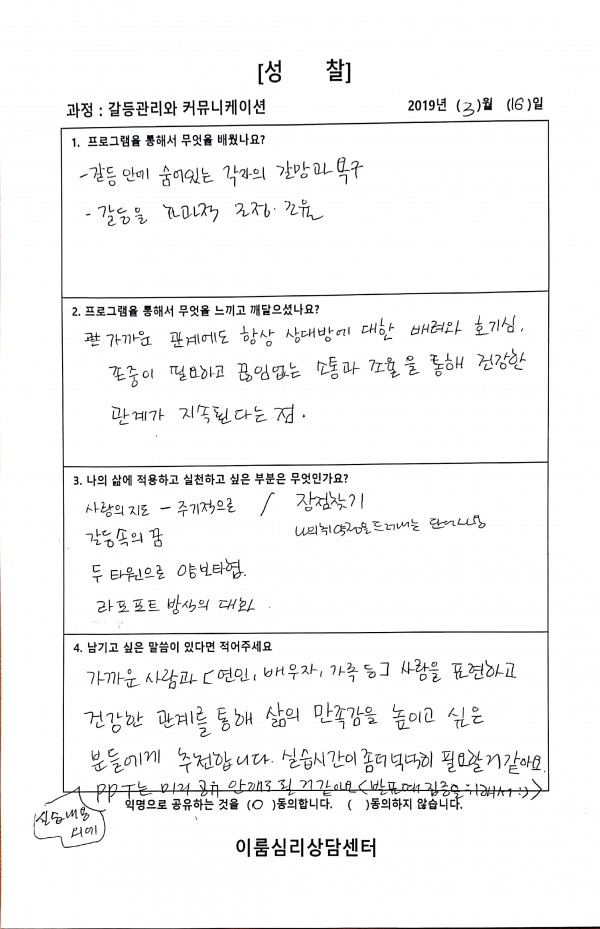 [성 찰]
과정 : 갈등관리와 커뮤니케이션
2019년 (3)월 (16)일
1. 프로그램을 통해서 무엇을 배웠나요?
-갈등 안에 숨어있는 각자의 갈망과 욕구
- 갈등을 효과적 조정·조율
2. 프로그램을 통해서 무엇을 느끼고 깨달으셨나요?
가까운 관계에도 항상 상대방에 대한 배려와 호기심,
존중이 필요하고 끊임없는 소통과 조율을 통해 건강한
관계가 지속된다는 점.
3. 나의 삶에 적용하고 실천하고 싶은 부분은 무엇인가요?
사랑의 지도 - 주기적으로 / 장점찾기
갈등속의 꿈 나의 취약점을 드러내는 단어사용
두 타원으로 양보타협.
라포포트 방식의 대화.
4. 남기고 싶은 말씀이 있다면 적어주세요
가까운 사람과 [연인, 배우자, 가족 등] 사랑을 표현하고
건강한 관계를 통해 삶의 만족감을 높이고 싶은
분들에게 추천합니다. 실습시간이 좀더 넉넉히 필요할거같아요.
PPT는 미리 공유 안해도 될거같아요 <발표때 집중을 위해서 :)>
실습내용 외에
익명으로 공유하는 것을 (O)동의합니다. ( )동의하지 않습니다.
이룸심리상담센터